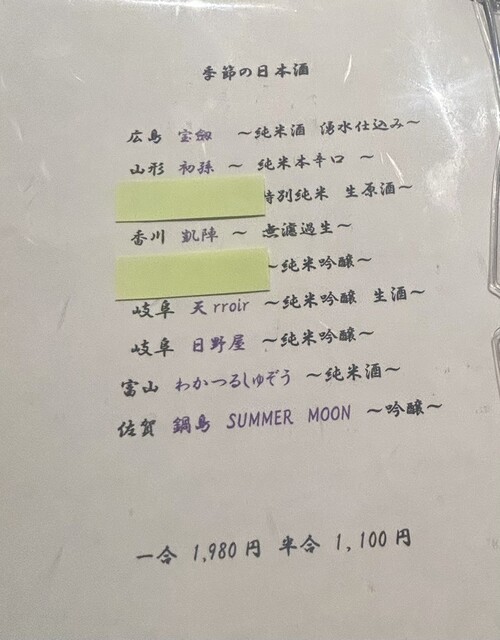 季節の日本酒
広島 宝劔 ～純米酒 湧水仕込み～
山形 初孫 ～ 純米本辛口 ～
特別純米 生原酒～
香川 凱陣 ～ 無濾過生～
～純米吟醸～
岐阜 天rroir ～純米吟醸 生酒～
岐阜 日野屋 ～純米吟醸～
富山 わかつるしゅぞう ～純米酒～
佐賀 鍋島 SUMMER MOON ～吟醸～
一合 1,980円 半合 1,100円